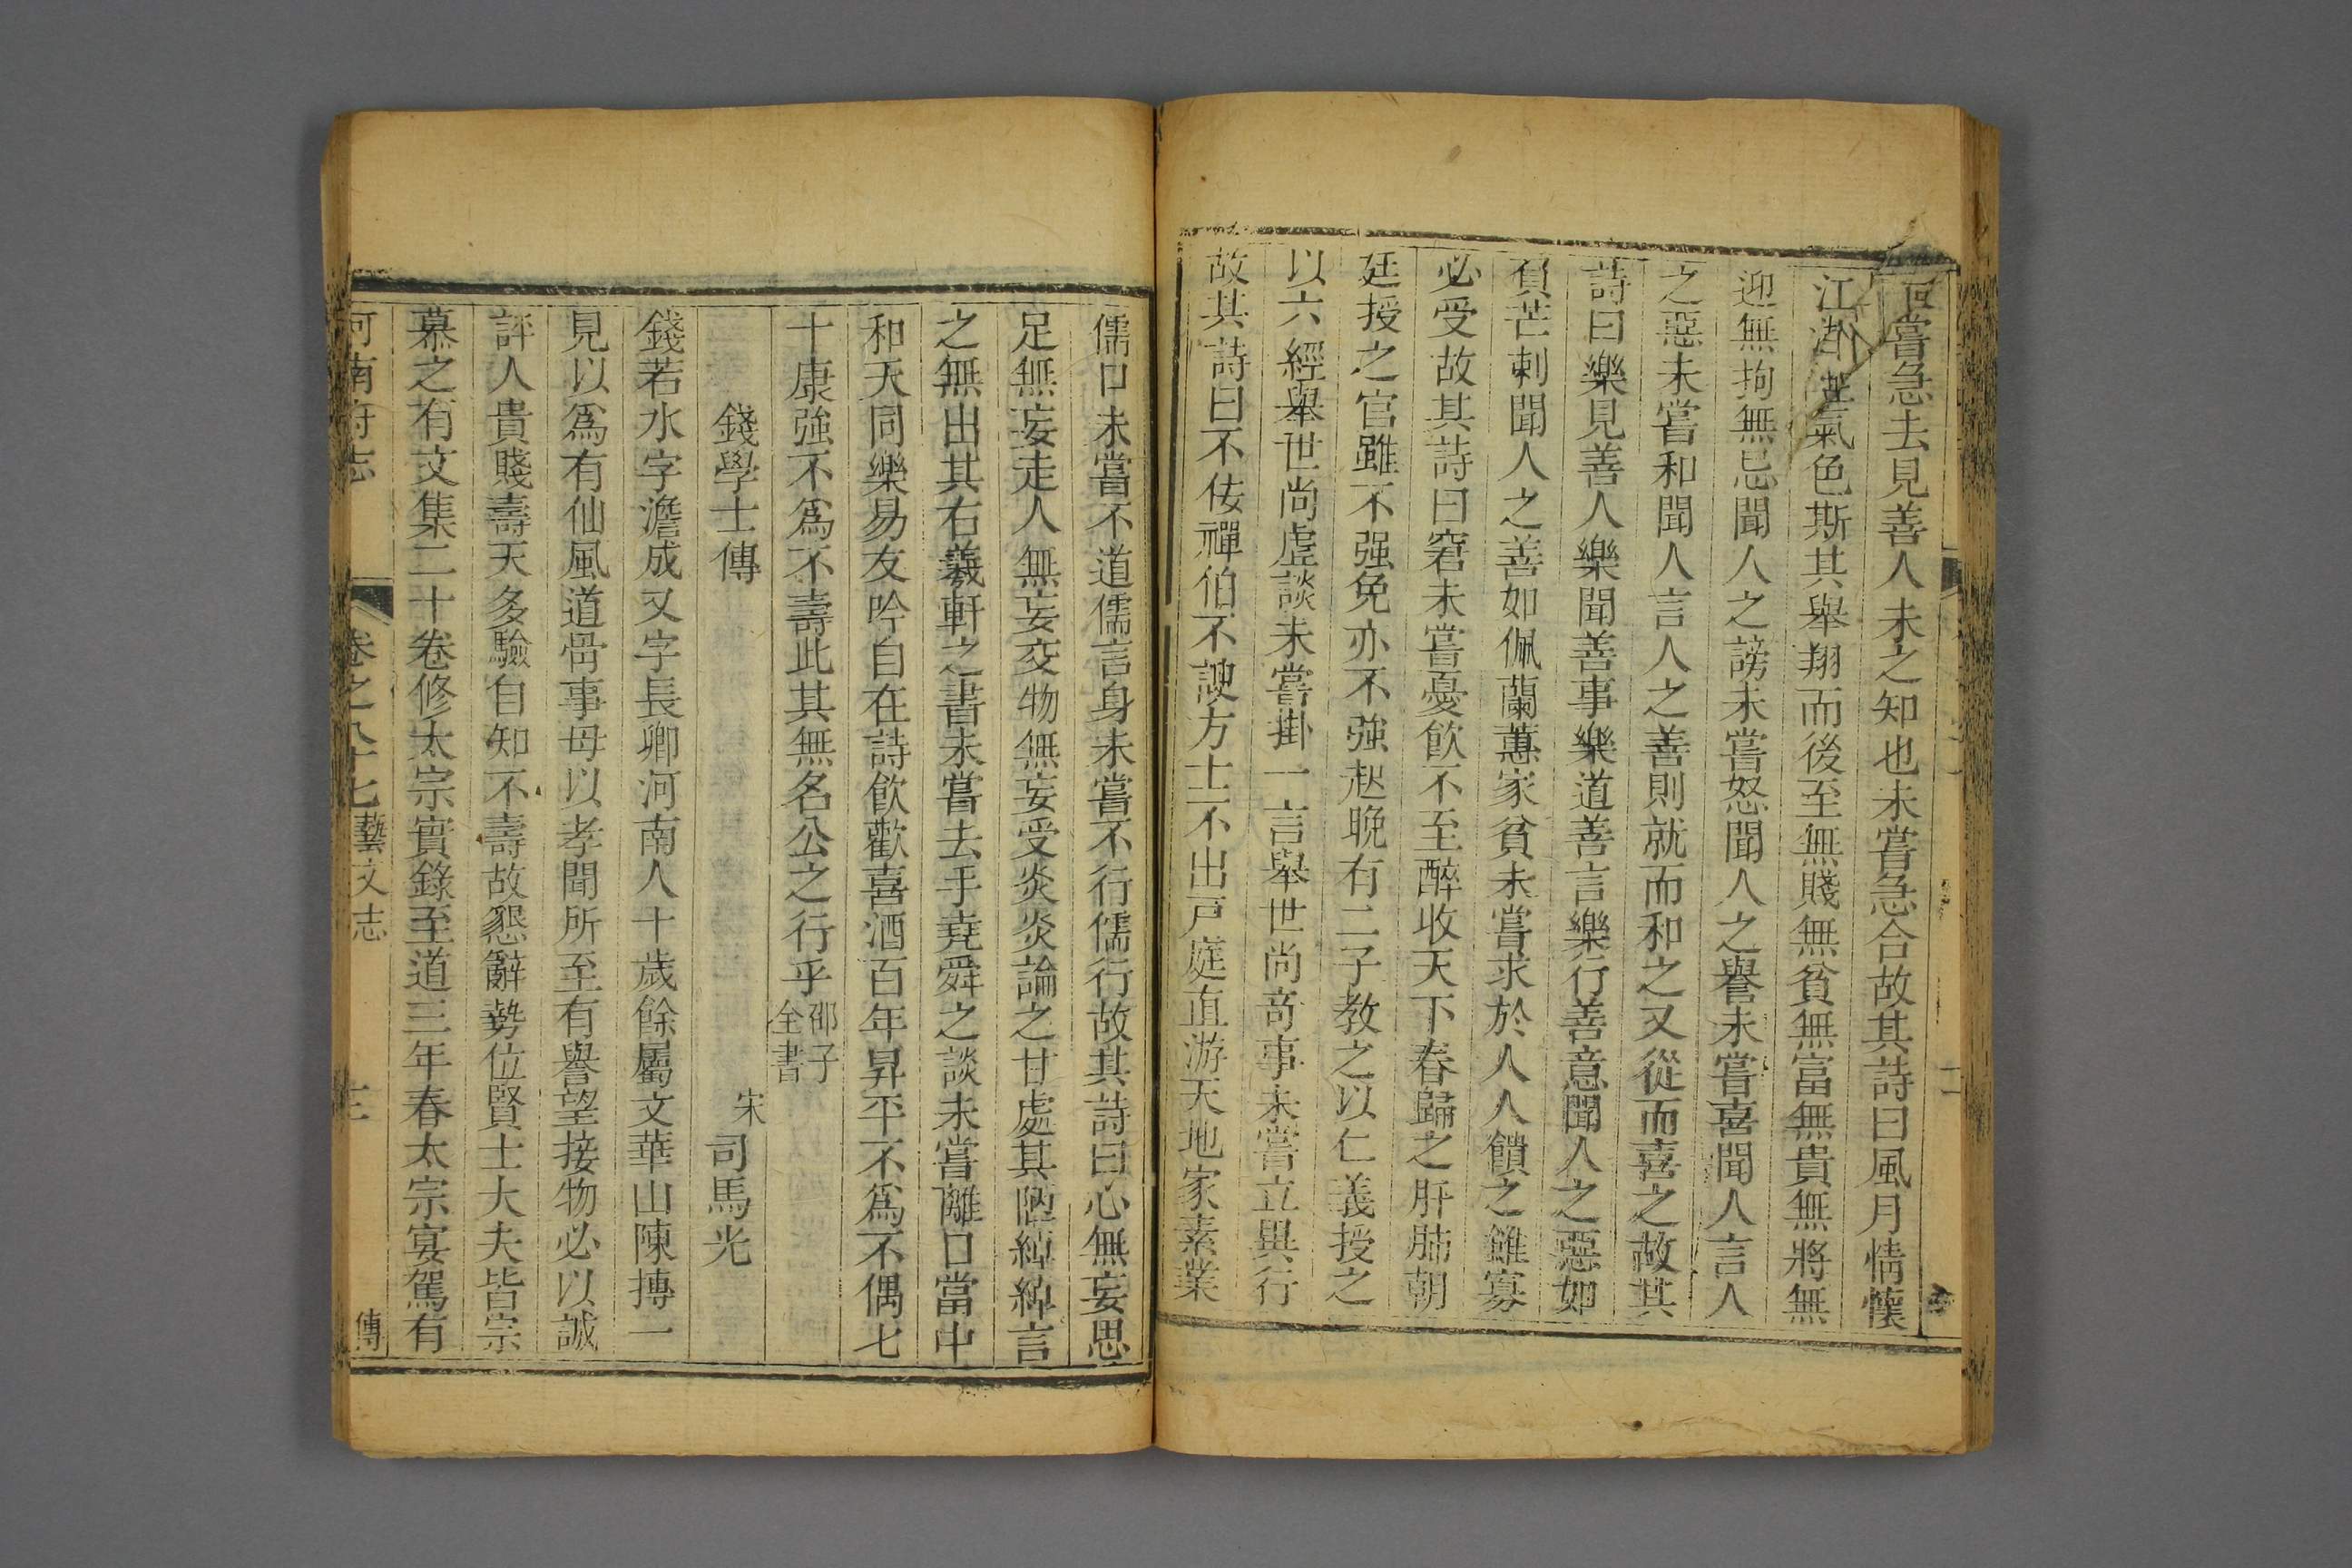 嘗急去見善人未之知也未嘗急合故其詩曰風月情懷
江湖氣色斯其舉翔而後至無賤無貧無富無貴無將無
迎無拘無忌聞人之謗未嘗怒聞人之譽未嘗喜聞人言人
之惡未嘗和聞人言人之善則就而和之又從而喜之故其
詩曰樂見善人樂聞善事樂道善言樂行善意聞人之惡如
負芒刺聞人之善如佩蘭蕙家貧未嘗求於人人饋之雖寡
必受故其詩曰窘未嘗憂飲不至醉收天下春歸之肝肺朝
廷授之官雖不强免亦不強起晚有二子教之以仁義授之
以六經舉世尚虛談未嘗掛一言舉世尚奇事未嘗立異行
故其詩曰不佞禪伯不諛方士不出戸庭直游天地家素業
儒口未嘗不道儒言身未嘗不行儒行故其詩曰心無妄思
足無妄走人無妄交物無妄受炎炎論之甘處其陋綽綽言
之無出其右羲軒之書未嘗去手堯舜之談未嘗離口當中
和天同樂易友吟自在詩飲歡喜酒百年昇平不爲不偶七
十康強不爲不壽此其無名公之行乎邵子全書
錢學士傳 宋司馬光
錢若水字澹成又字長卿河南人十歲餘屬文華山陳摶一
見以爲有仙風道骨事母以孝聞所至有譽望接物必以誠
評人貴賤壽夭多驗自知不壽故懇辭勢位賢士大夫皆宗
慕之有文集二十卷修太宗實錄至道三年春太宗宴駕有
河南府志 卷之八十七藝文志 傳